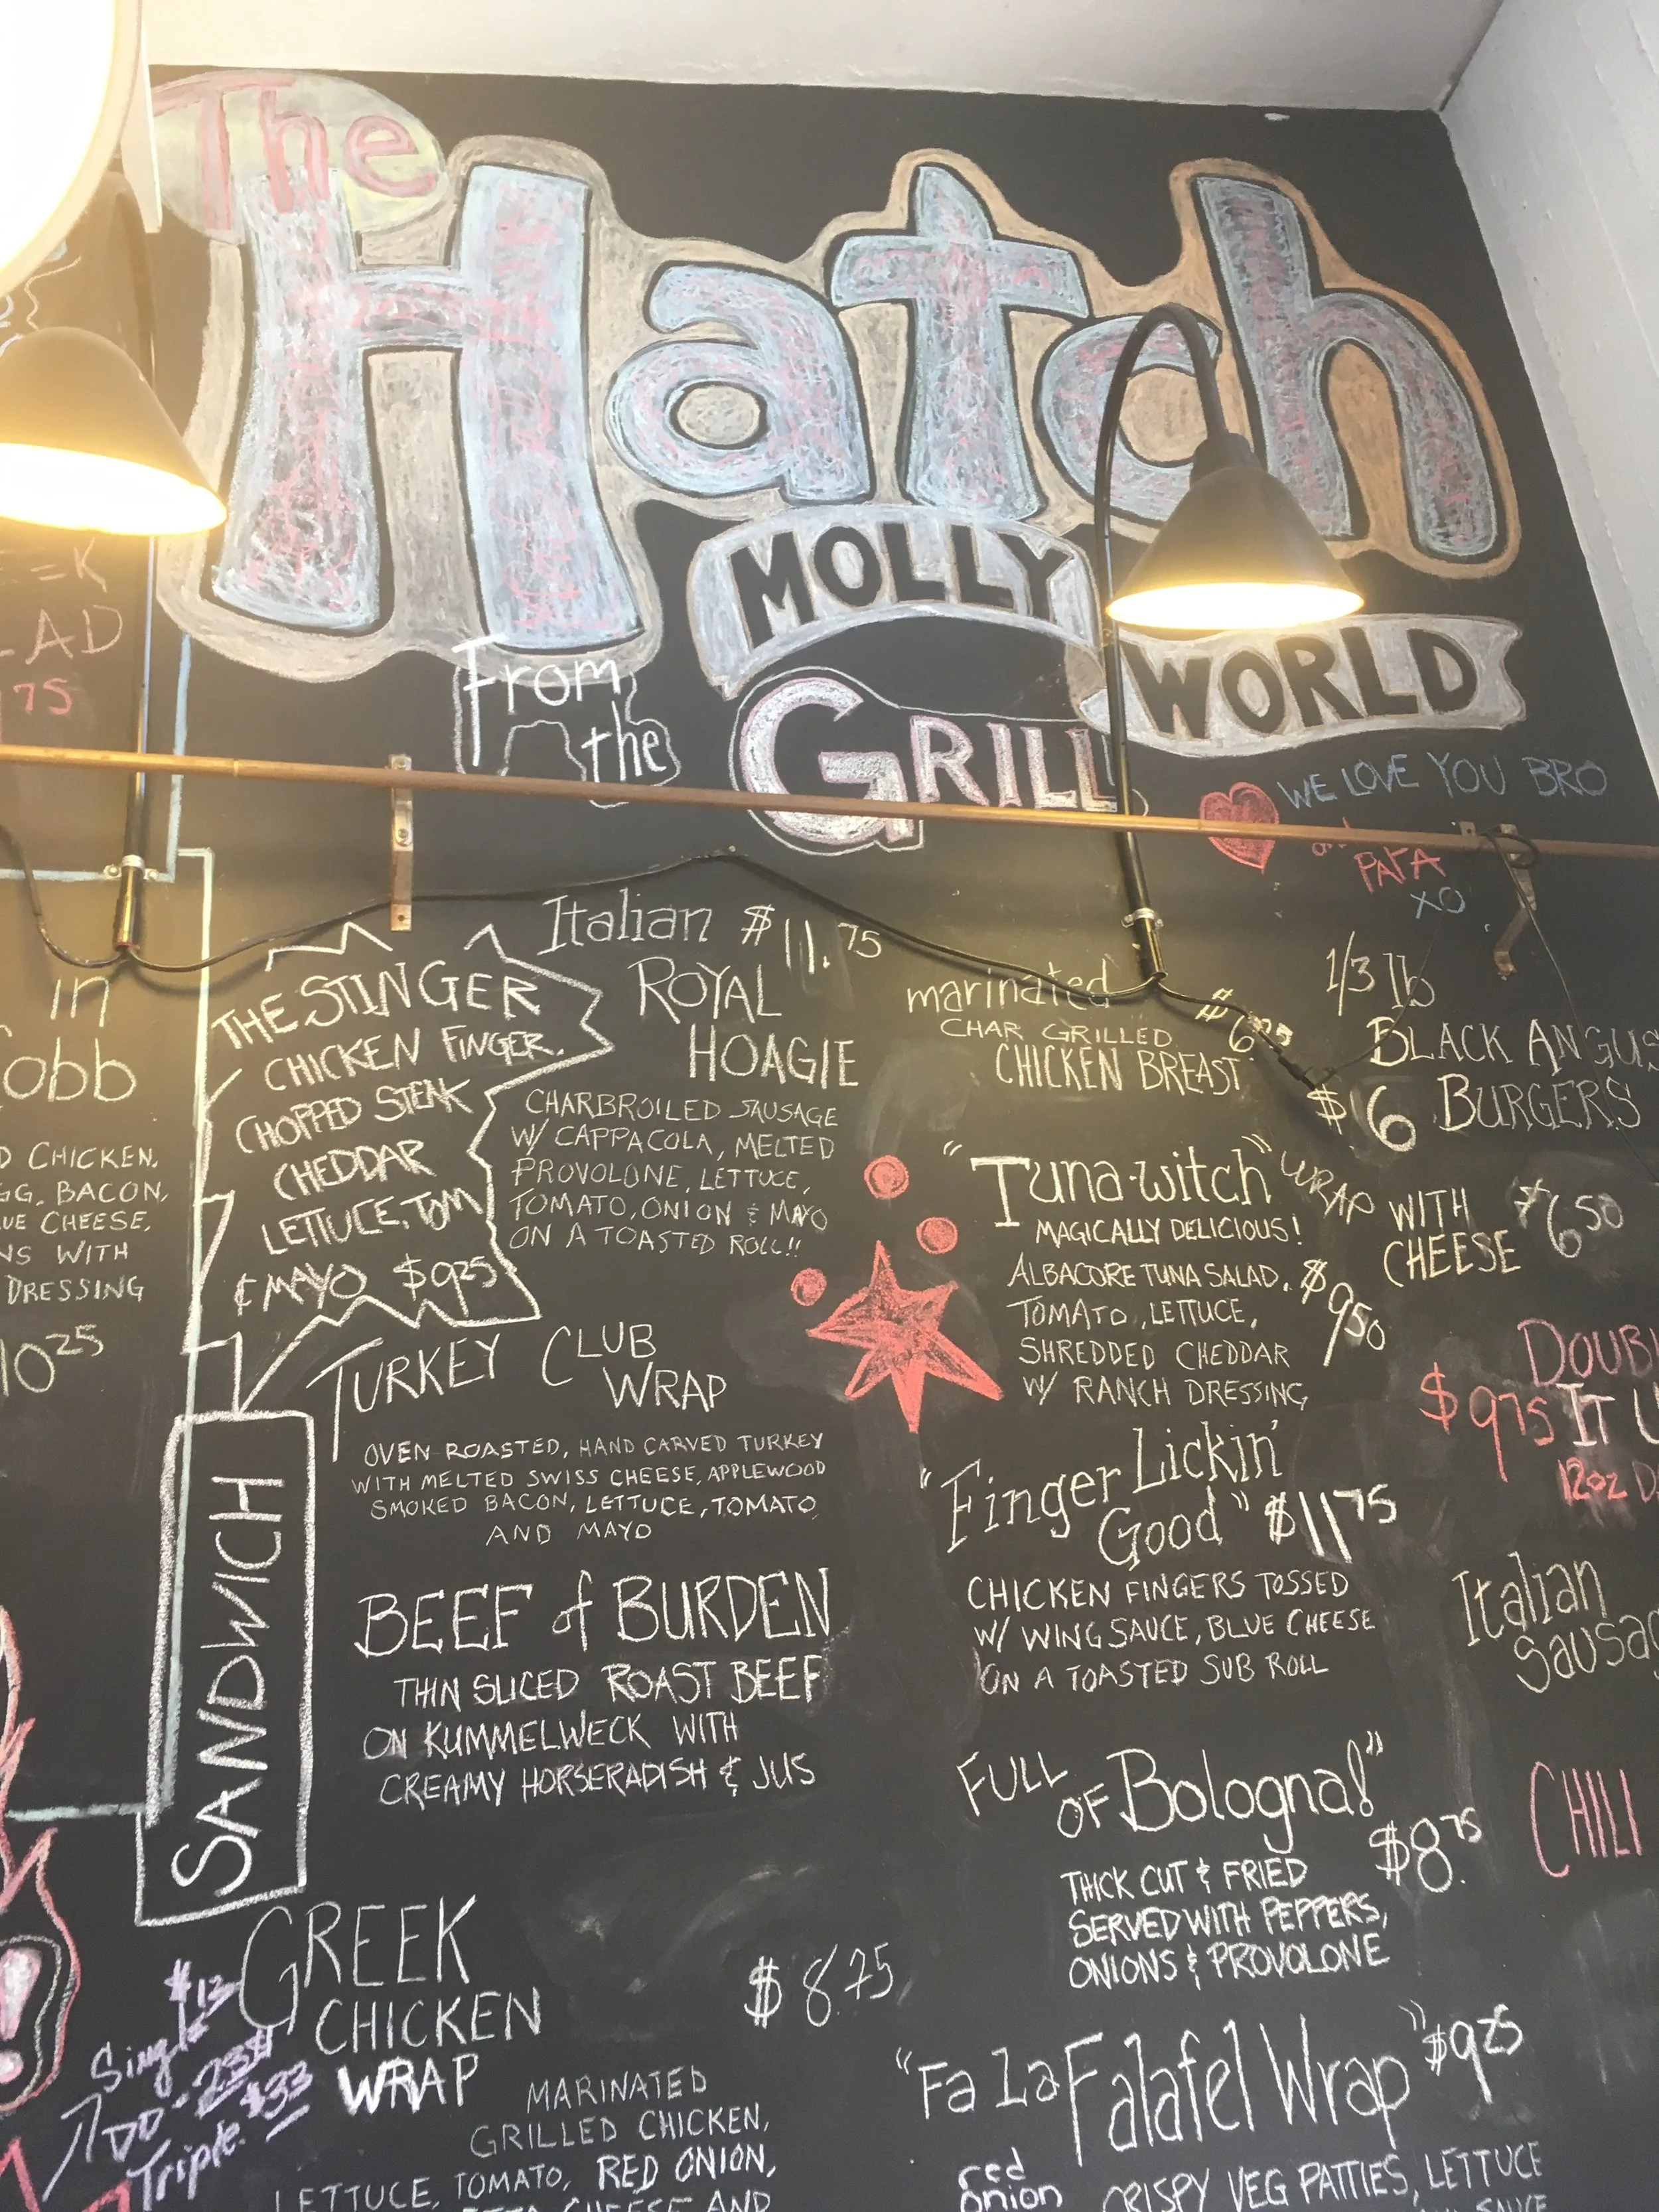 The
Hatch
MOLLY
WORLD
From
the
GRILL
WE LOVE YOU BRO
PATA
XO
AD
75
in
Cobb
CHICKEN,
BACON,
CHEESE,
WITH
DRESSING
10 25
THE STINGER
CHICKEN FINGER.
CHOPPED STEAK
CHEDDAR
LETTUCE, TOM
& MAYO $925
Italian $11.75
ROYAL
HOAGIE
CHARBROILED SAUSAGE
W/ CAPPACOLA, MELTED
PROVOLONE, LETTUCE,
TOMATO, ONION & MAYO
ON A TOASTED ROLL!!
TURKEY CLUB
WRAP
OVEN ROASTED, HAND CARVED TURKEY
WITH MELTED SWISS CHEESE, APPLEWOOD
SMOKED BACON, LETTUCE, TOMATO
AND MAYO
SANDWICH
BEEF of BURDEN
THIN SLICED ROAST BEEF
ON KUMMELWECK WITH
CREAMY HORSERADISH & JUS
GREEK
CHICKEN
WRAP
$8.75
MARINATED
GRILLED CHICKEN,
LETTUCE, TOMATO, RED ONION,
CHEESE AND
$13
Single
Triple $33
marinated
CHAR GRILLED
CHICKEN BREAST
"Tuna-witch" WRAP
MAGICALLY DELICIOUS!
ALBACORE TUNA SALAD, $950
TOMATO, LETTUCE,
SHREDDED CHEDDAR
W/ RANCH DRESSING
"Finger Lickin'
Good" $1175
CHICKEN FINGERS TOSSED
W/ WING SAUCE, BLUE CHEESE
ON A TOASTED SUB ROLL
FULL
OF Bologna!"
$8.75
THICK CUT & FRIED
SERVED WITH PEPPERS,
ONIONS & PROVOLONE
"Fa La Falafel Wrap" $925
red
onion
CRISPY VEG PATTIES, LETTUCE
1/3 lb
BLACK ANGUS
$6 BURGERS
WITH
CHEESE $650
DOUB
$975 IT U
12oz
Italian
Sausag
CHILI